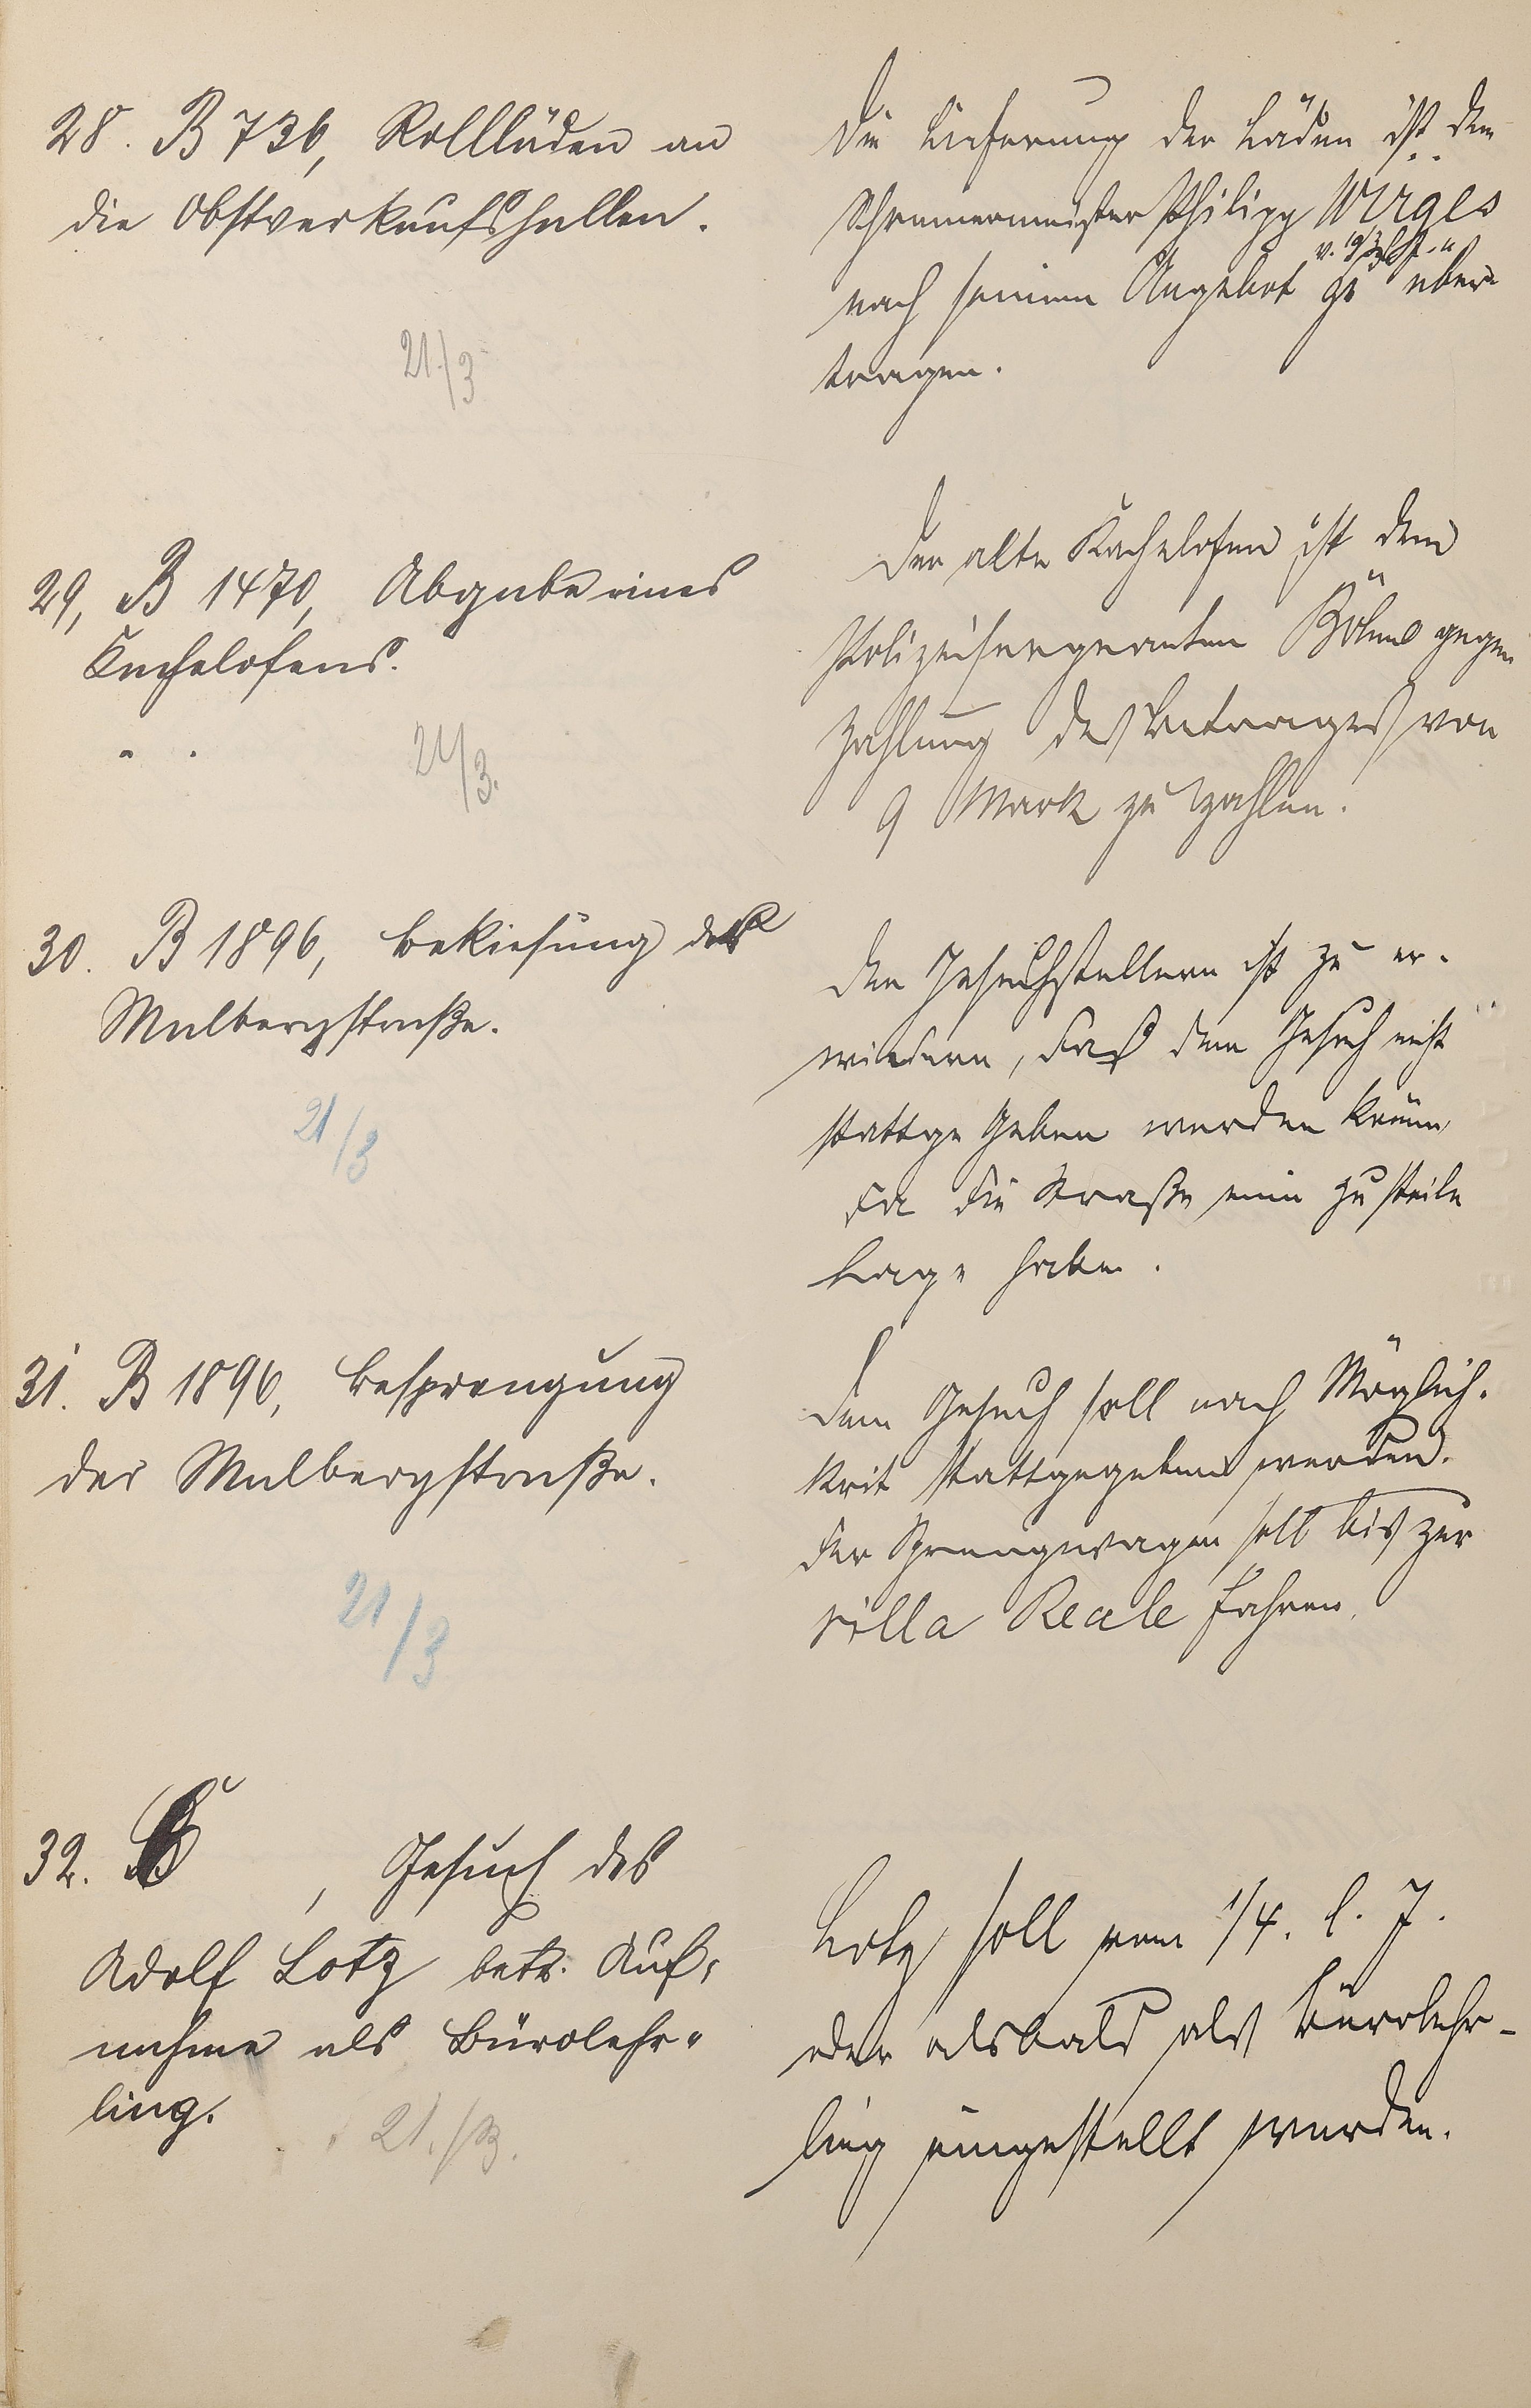 28. B 736, Rollläden an
die Obstverkaufshallen.
21./3
Die Lieferung der Läden ist dem
Schreinermeister Philipp Wirges
nach seinem Angebot v. 19/3 zu über-
tragen.
29, B 1470, Abgabe eines
Kachelofens.
21/3.
Der alte Kachelofen ist dem
Polizeisergeanten Böhm gegen
Zahlung des Betrages von
9 Mark zu zahlen.
30. B 1896, Bekiesung der
Malbergstraße.
21/3
Den Gesuchstellern ist zu er-
widern, daß dem Gesuch nicht
stattgegeben werden könne
da die Straße eine zu steile
Lage habe.
31. B 1896, Besprengung
der Malbergstraße.
21/3
Dem Gesuch soll nach Möglich-
keit stattgegeben werden.
Der Sprengwagen soll bis zur
Villa Reale fahren.
32. B , Gesuch des
Adolf Lotz betr. Auf-
nahme als Bürolehr-
ling.
21./3.
Lotz soll vom 1/4. l. J.
oder alsbald als Bürolehr-
ling eingestellt werden.